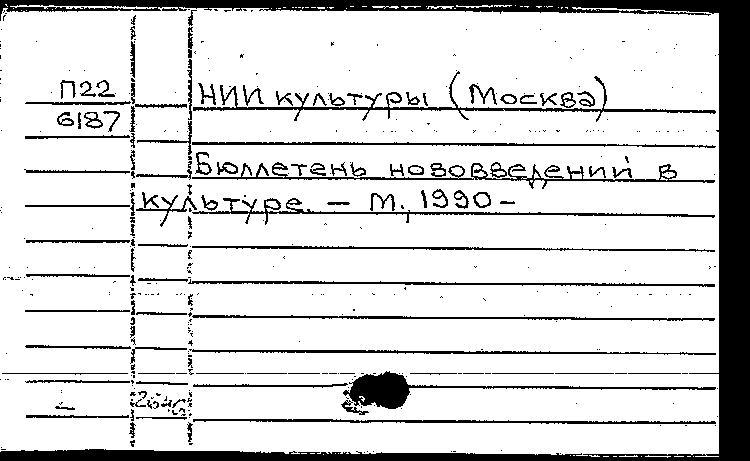 П22
НИИ культуры (Москва)
6187
Бюллетень нововведений в
культуре. — М., 1990 –